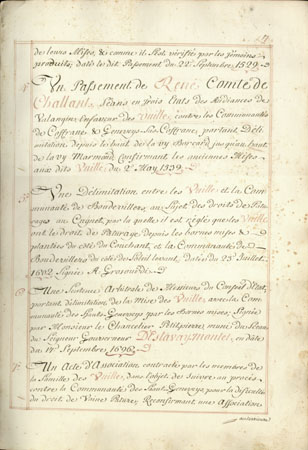 de leurs Mises, & comme il s'est vérifié par les témoins
produits, daté le dit Passement du 22e Septembre 1529.
Un Passement de René Comte de
Challant, Séans en trois Etats des Audiances de
Valangin, en faveur des Vuille, contre les Communautés
de Coffrane & Geneveys sur Coffrane, portant Déli-
mitation depuis le haut de la vy Berard jusqu'au haut
de la vy Marmoud, Confirmant les anciennes Mises
aux dits Vuille, du 2e May 1539.
Une Délimitation entre les Vuille et la Com-
munauté de Boudevilliers, au sujet des droits de Pâtu-
rages au par laquelle il est réglé que les Vuille
ont le droit de Pâturage depuis les bornes mises &
plantées du coté du Couchant, et la Communauté de
Boudevilliers du coté du Soleil levant, datée du 25e Juillet
1692 Signée A.
Une Sentence Arbitrale de Messieurs du Conseil d'Etat,
portant délimitation de la Mise des Vuille, avec la Com-
munauté des Hauts Geneveys par les bornes mises, Signée
par Monsieur le Chancelier Petitpierre, munie du Sceau de
Seigneur Gouverneur D'Estavay Mollet, en date
du 17e Septembre 1696.
Un Acte d'Association contractée par les membres de
la famille des Vuille, dans l'objet de suivre au procès
contre la Communauté des Hauts Geneveys pour la difficulté
du droit de Vaine Pâture, Renfermant une Association